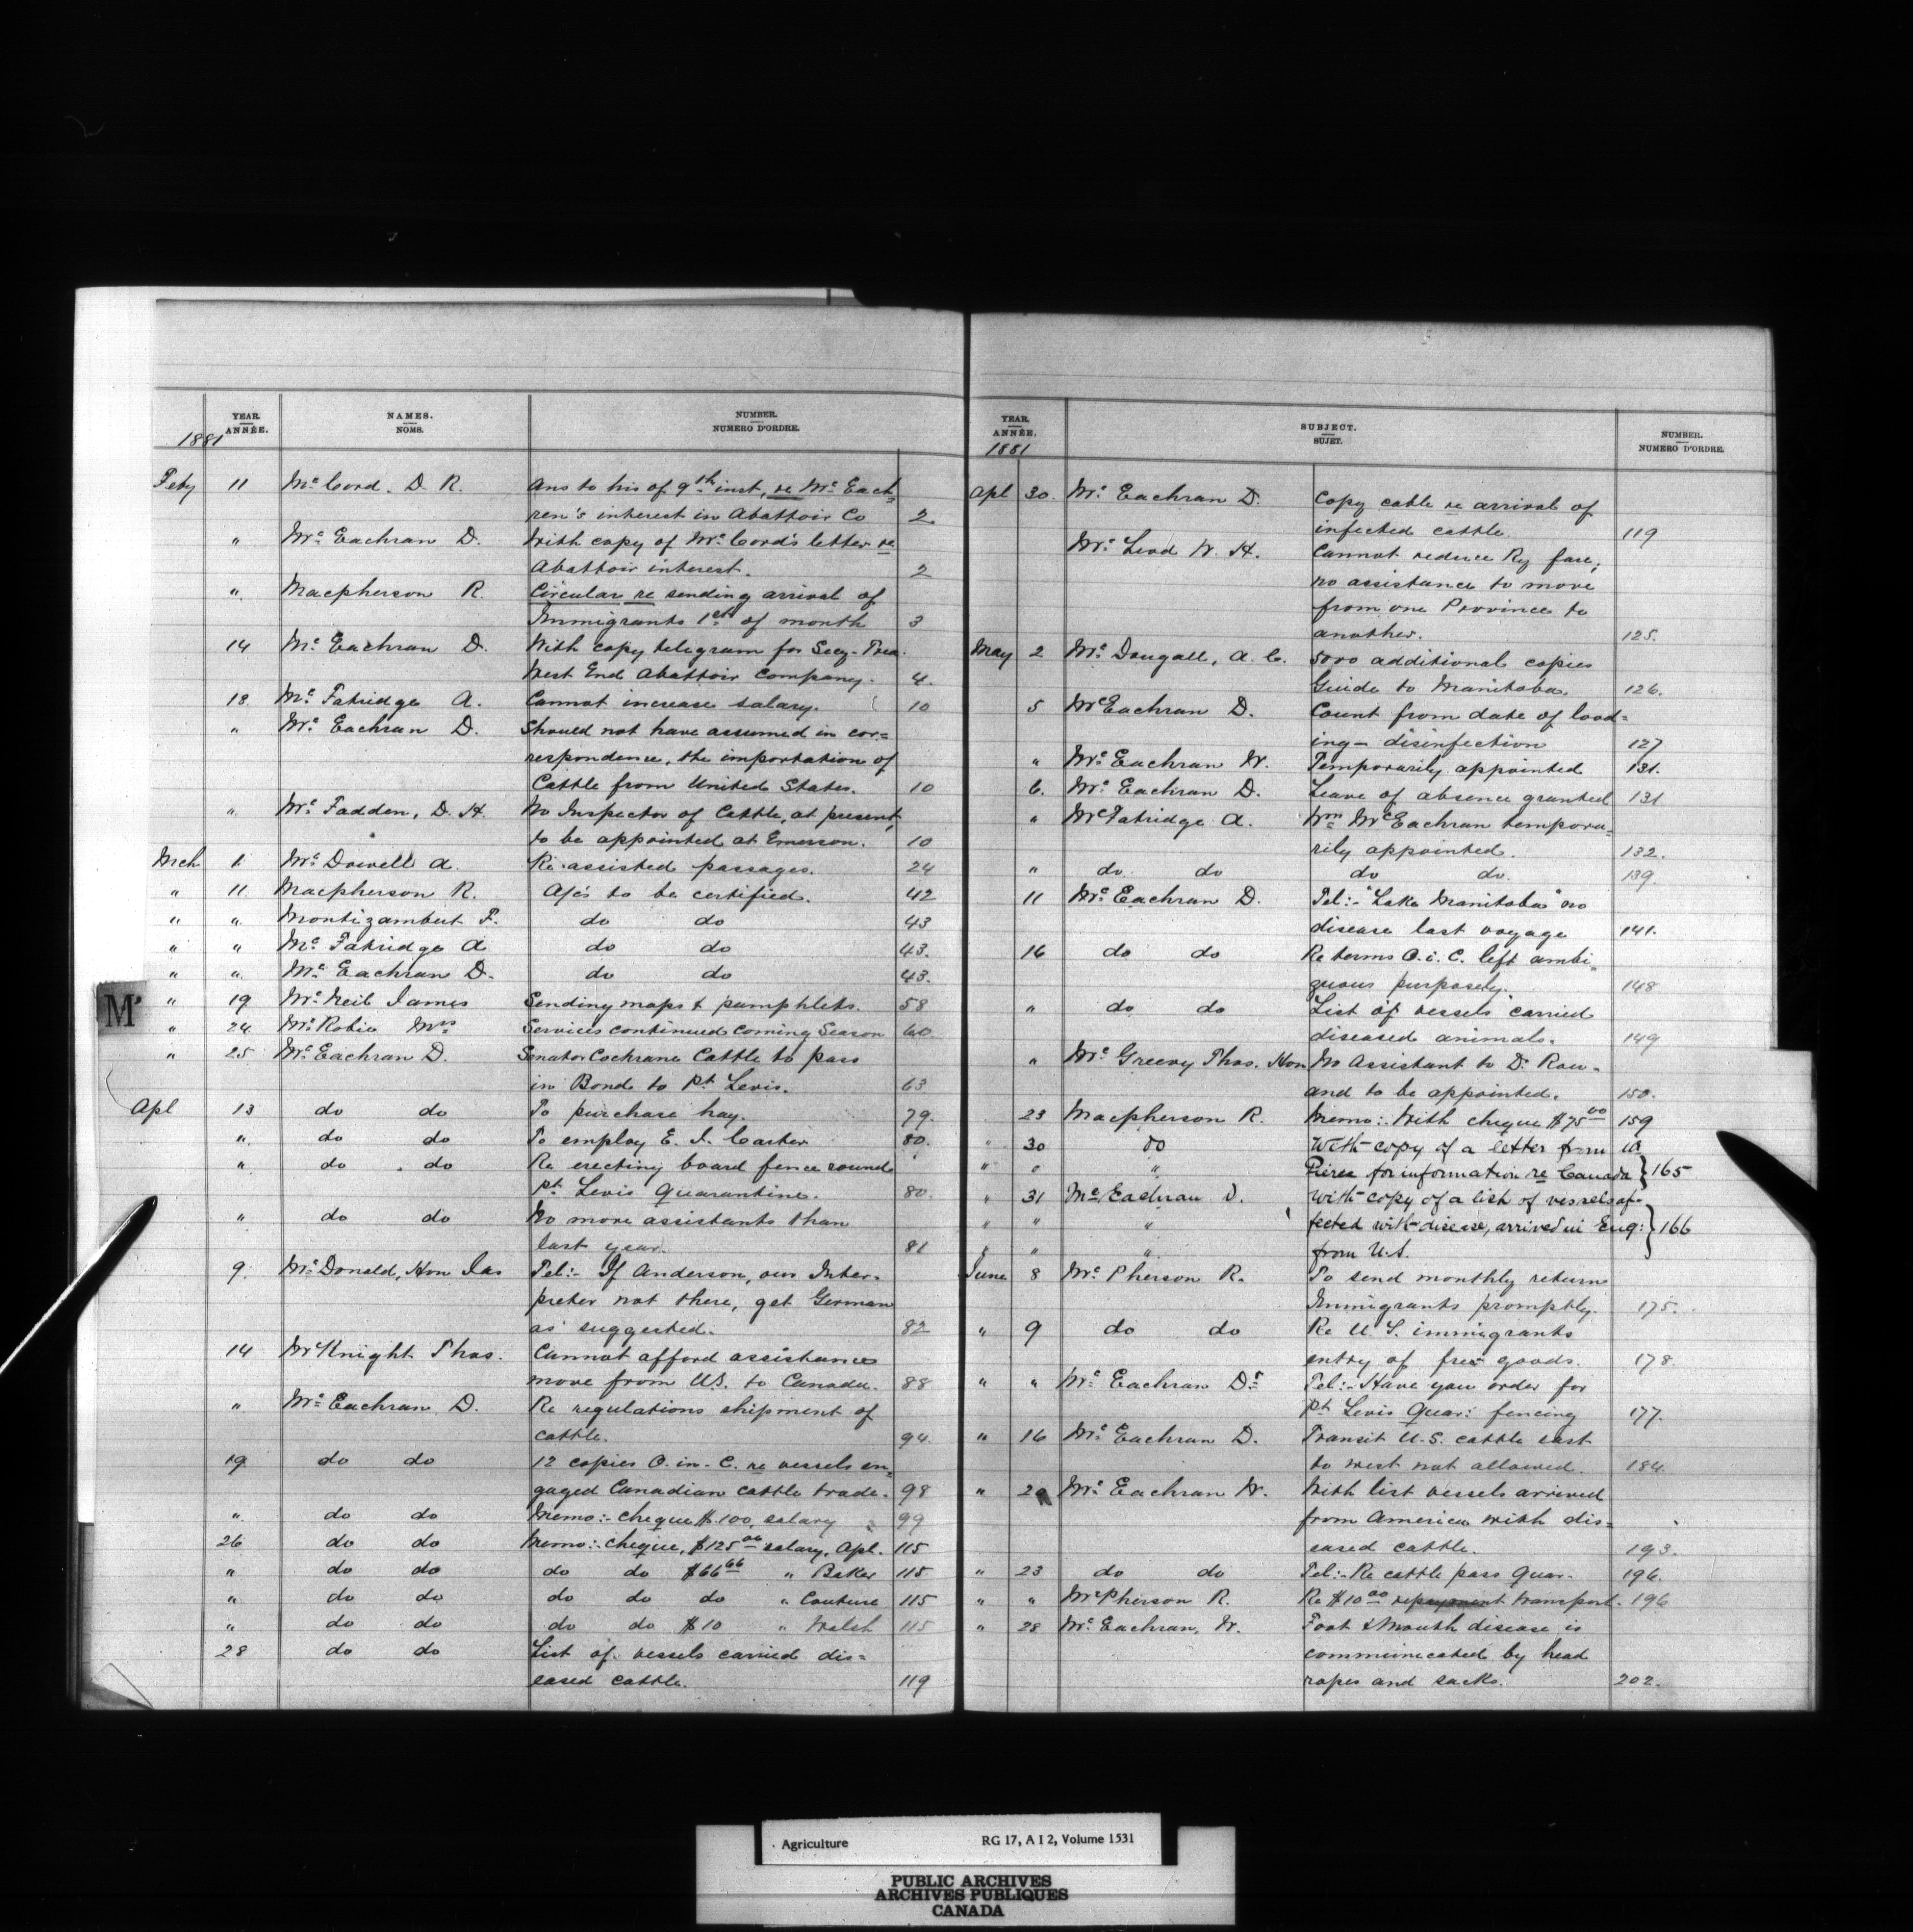 YEAR. ANNÉE. NAMES. NOMS. NUMBER. NUMERO D'ORDRE.
1881
Feby 11 McCord. D. R. Ans to his of 9th inst, re McEach-
ren's interest in Abattoir Co 2.
" McEachran D. With copy of McCord's letter re
Abattoir interest. 2
" Macpherson R. Circular re sending arrival of
Immigrants 1st of month 3
14 McEachran D. With copy telegram for Secy-Trea.
West End Abattoir Company. 4.
18 McFatridge A. Cannot increase salary. 10
" McEachran D. Should not have assumed in cor=
respondence, the importation of
Cattle from United States. 10
" McFadden, D. H. No Inspector of Cattle, at present,
to be appointed at Emerson. 10
Mch 1 McDowell A. Re assisted passages. 24
" 11 Macpherson R. A/cs to be certified. 42
" " Montizambert F. do do 43
" " McFatridge A do do 43.
" " McEachran D. do do 43.
M'
" 19 McNeil James Sending maps & pamphlets. 58
" 24 McRobie Mrs Services continued coming Season 60.
" 25 McEachran D. Senator Cochrane Cattle to pass
in Bond to Pt Levis. 63
Apl 13 do do To purchase hay. 79.
" do do To employ E. I. Carter 80.
" do do Re erecting board fence round
Pt Levis Quarantine. 80.
" do do No more assistants than
last year. 81
9. McDonald, Hon Jas Tel:- If Anderson, our Inter-
preter not there, get German
as suggested. 82
14 McKnight Thos. Cannot afford assistance
move from U.S. to Canada. 88
" McEachran D. Re regulations shipment of
cattle. 94.
19 do do 12 copies O. in. C. re vessels en-
gaged Canadian cattle trade. 98
" do do Memo:- cheque $100, salary 99
26 do do Memo:- cheque, $125.00 salary, Apl. 115
" do do do do $66.66 " Baker 115
" do do do do do " Couture 115
" do do do do $10 " Walsh 115
28 do do List of vessels carried dis=
eased cattle. 119
YEAR. ANNÉE. SUBJECT. SUJET. NUMBER. NUMERO D'ORDRE.
1881
Apl 30. McEachran D. Copy cable re arrival of
infected cattle. 119
McLeod W. H. Cannot reduce Ry fare;
no assistance to move
from one Province to
another. 125.
May 2 McDougall, A. C. 5000 additional copies
Guide to Manitoba. 126.
5 McEachran D. Count from date of load=
ing - disinfection 127
" McEachran W. Temporarily appointed 131.
6. McEachran D. Leave of absence granted 131
" McFatridge A. Wm McEachran tempora-
rily appointed. 132.
" do do do do. 139.
11 McEachran D. Tel:- "Lake Manitoba" no
disease last voyage 141.
16 do do Re terms O. i. C. left ambi-
guous purposely. 148
" do do List of vessels carried
diseased animals. 149
" McGreevy Thos. Hon No Assistant to Dr Row-
and to be appointed. 150.
23 Macpherson R. Memo:- With cheque $75.00 159
" 30 do With copy of a letter from
" " " Pierce for information re Canada } 165
" 31 McEachran D. With copy of a list of vessels af-
" " " fected with disease, arrived in Eng: } 166
" " " from U.S.
June 8 McPherson R. To send monthly return
Immigrants promptly. 175.
" 9 do do Re U. S. immigrants
entry of free goods. 178.
" " McEachran Dr Tel:- Have you order for
Pt Levis Quar: fencing 177.
" 16 McEachran D. Transit U.S. cattle east
to west not allowed. 184.
" McEachran W. With list vessels arrived
from America with dis=
eased cattle. 193.
" 23 do do Tel:- Re cattle pass Quar- 196.
" " McPherson R. Re $10.00 repayment transport. 196
" 28 McEachran, W. Foot & Mouth disease is
communicated by head
ropes and sacks. 202.
Agriculture RG 17, A I 2, Volume 1531
PUBLIC ARCHIVES
ARCHIVES PUBLIQUES
CANADA